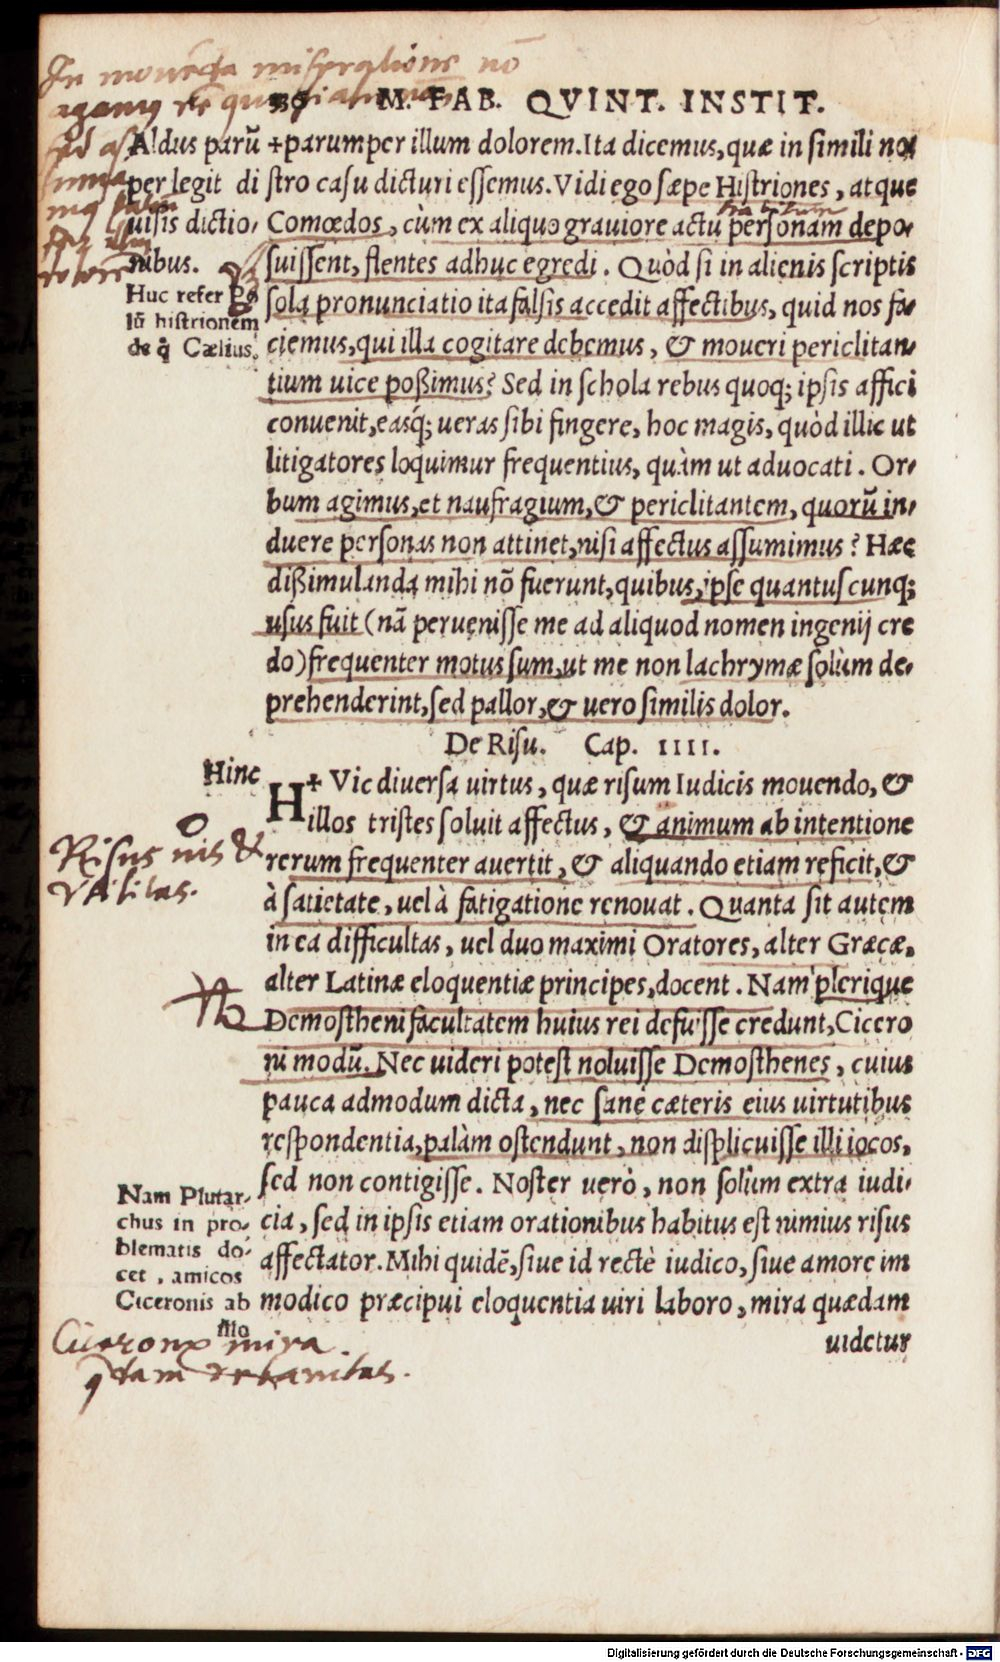 In movēda miseratione nō
agamus rē quasi alienam
sed assu
M. FAB. QVINT. INSTIT.
Aldus parū
per legit di
uisis dictio,
nibus.
Huc refer Po
lū histrionem
de q̃ Cælius.
+parumper illum dolorem. Ita dicemus, quæ in simili no,
stro casu dicturi essemus. Vidi ego sæpe Histriones, atque
Comœdos, cùm ex aliquo grauiore actu personam depo,
suissent, flentes adhuc egredi. Quòd si in alienis scriptis
sola pronunciatio ita falsis accedit affectibus, quid nos fa,
ciemus, qui illa cogitare debemus, & moueri periclitan,
tium uice poßimus? Sed in schola rebus quoq; ipsis affici
conuenit, easq́; ueras sibi fingere, hoc magis, quòd illic ut
litigatores loquimur frequentius, quàm ut aduocati. Or,
bum agimus, et naufragium, & periclitantem, quorū in,
duere personas non attinet, nisi affectus assumimus? Hæc
dißimulanda mihi nō fuerunt, quibus, ipse quantuscunq;
usus fuit (nā peruenisse me ad aliquod nomen ingenij cre
do) frequenter motus sum, ut me non lachrymæ solùm de,
prehenderint, sed pallor, & uero similis dolor.
De Risu. Cap. IIII.
Hinc
H+Vic diuersa uirtus, quæ risum Iudicis mouendo, &
illos tristes soluit affectus, & animum ab intentione
rerum frequenter auertit, & aliquando etiam reficit, &
à satietate, uel à fatigatione renouat. Quanta sit autem
in ea difficultas, uel duo maximi Oratores, alter Græcæ,
alter Latinæ eloquentiæ principes, docent. Nam plerique
Demostheni facultatem huius rei defuisse credunt, Cicero
ni modū. Nec uideri potest noluisse Demosthenes, cuius
pauca admodum dicta, nec sanè cæteris eius uirtutibus
respondentia, palàm ostendunt, non displicuisse illi iocos,
sed non contigisse. Noster uerò, non solùm extra iudi,
cia, sed in ipsis etiam orationibus habitus est nimius risus
affectator. Mihi quidē, siue id rectè iudico, siue amore im
modico præcipui eloquentia uiri laboro, mira quædam
uidetur
Risus uis &
Vtilitas.
Nam Plutar,
chus in pro,
blematis do,
cet, amicos
Ciceronis ab
illo
Ciceronis mira
q̄dam urbanitas.
Digitalisierung gefördert durch die Deutsche Forschungsgemeinschaft - DFG